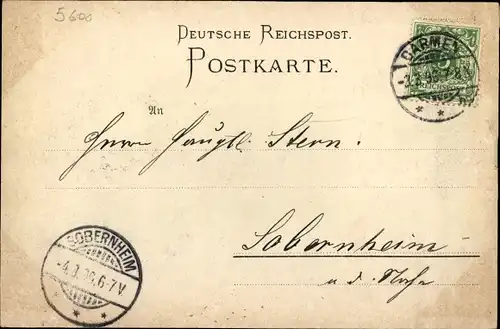 5600
DEUTSCHE REICHSPOST.
POSTKARTE.
BARMEN
7-8
An
Herrn Stern.
Sobernheim
a. d. Nahe
SOBERNHEIM
6-7 V.